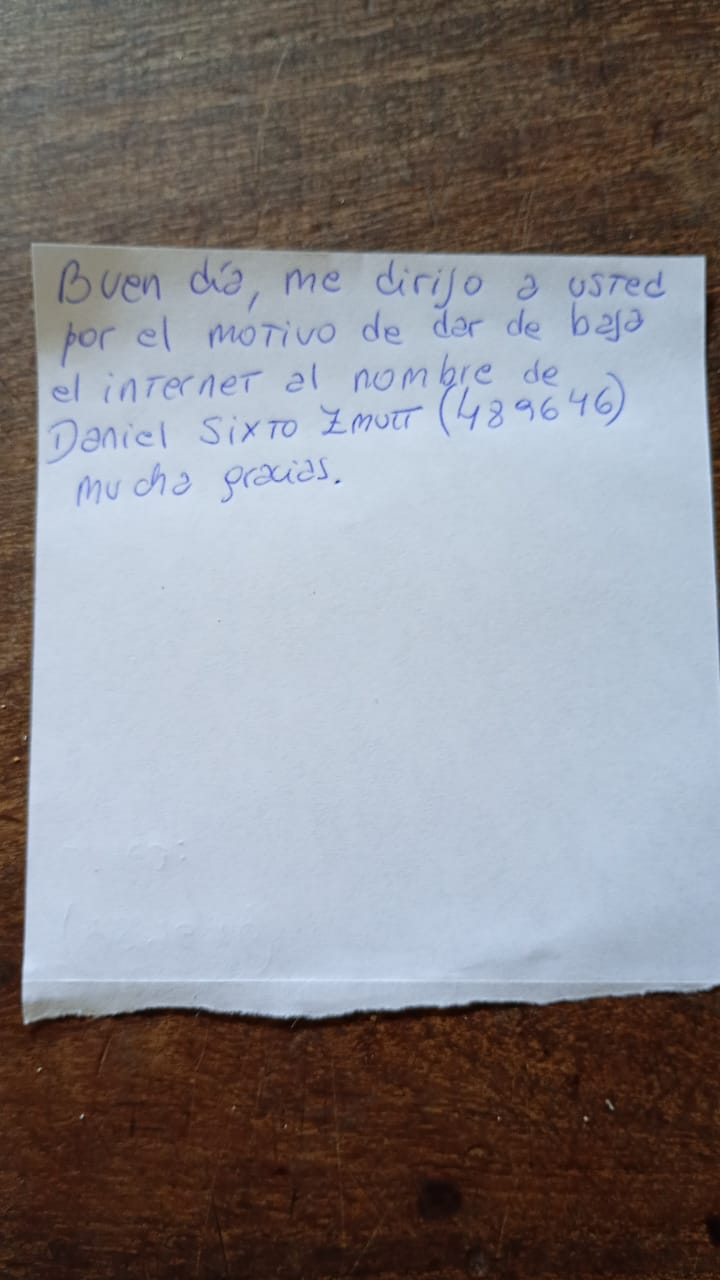 Buen día, me dirijo a usted
por el motivo de dar de baja
el internet al nombre de
Daniel Sixto Zmutt (489646)
mucha gracias.